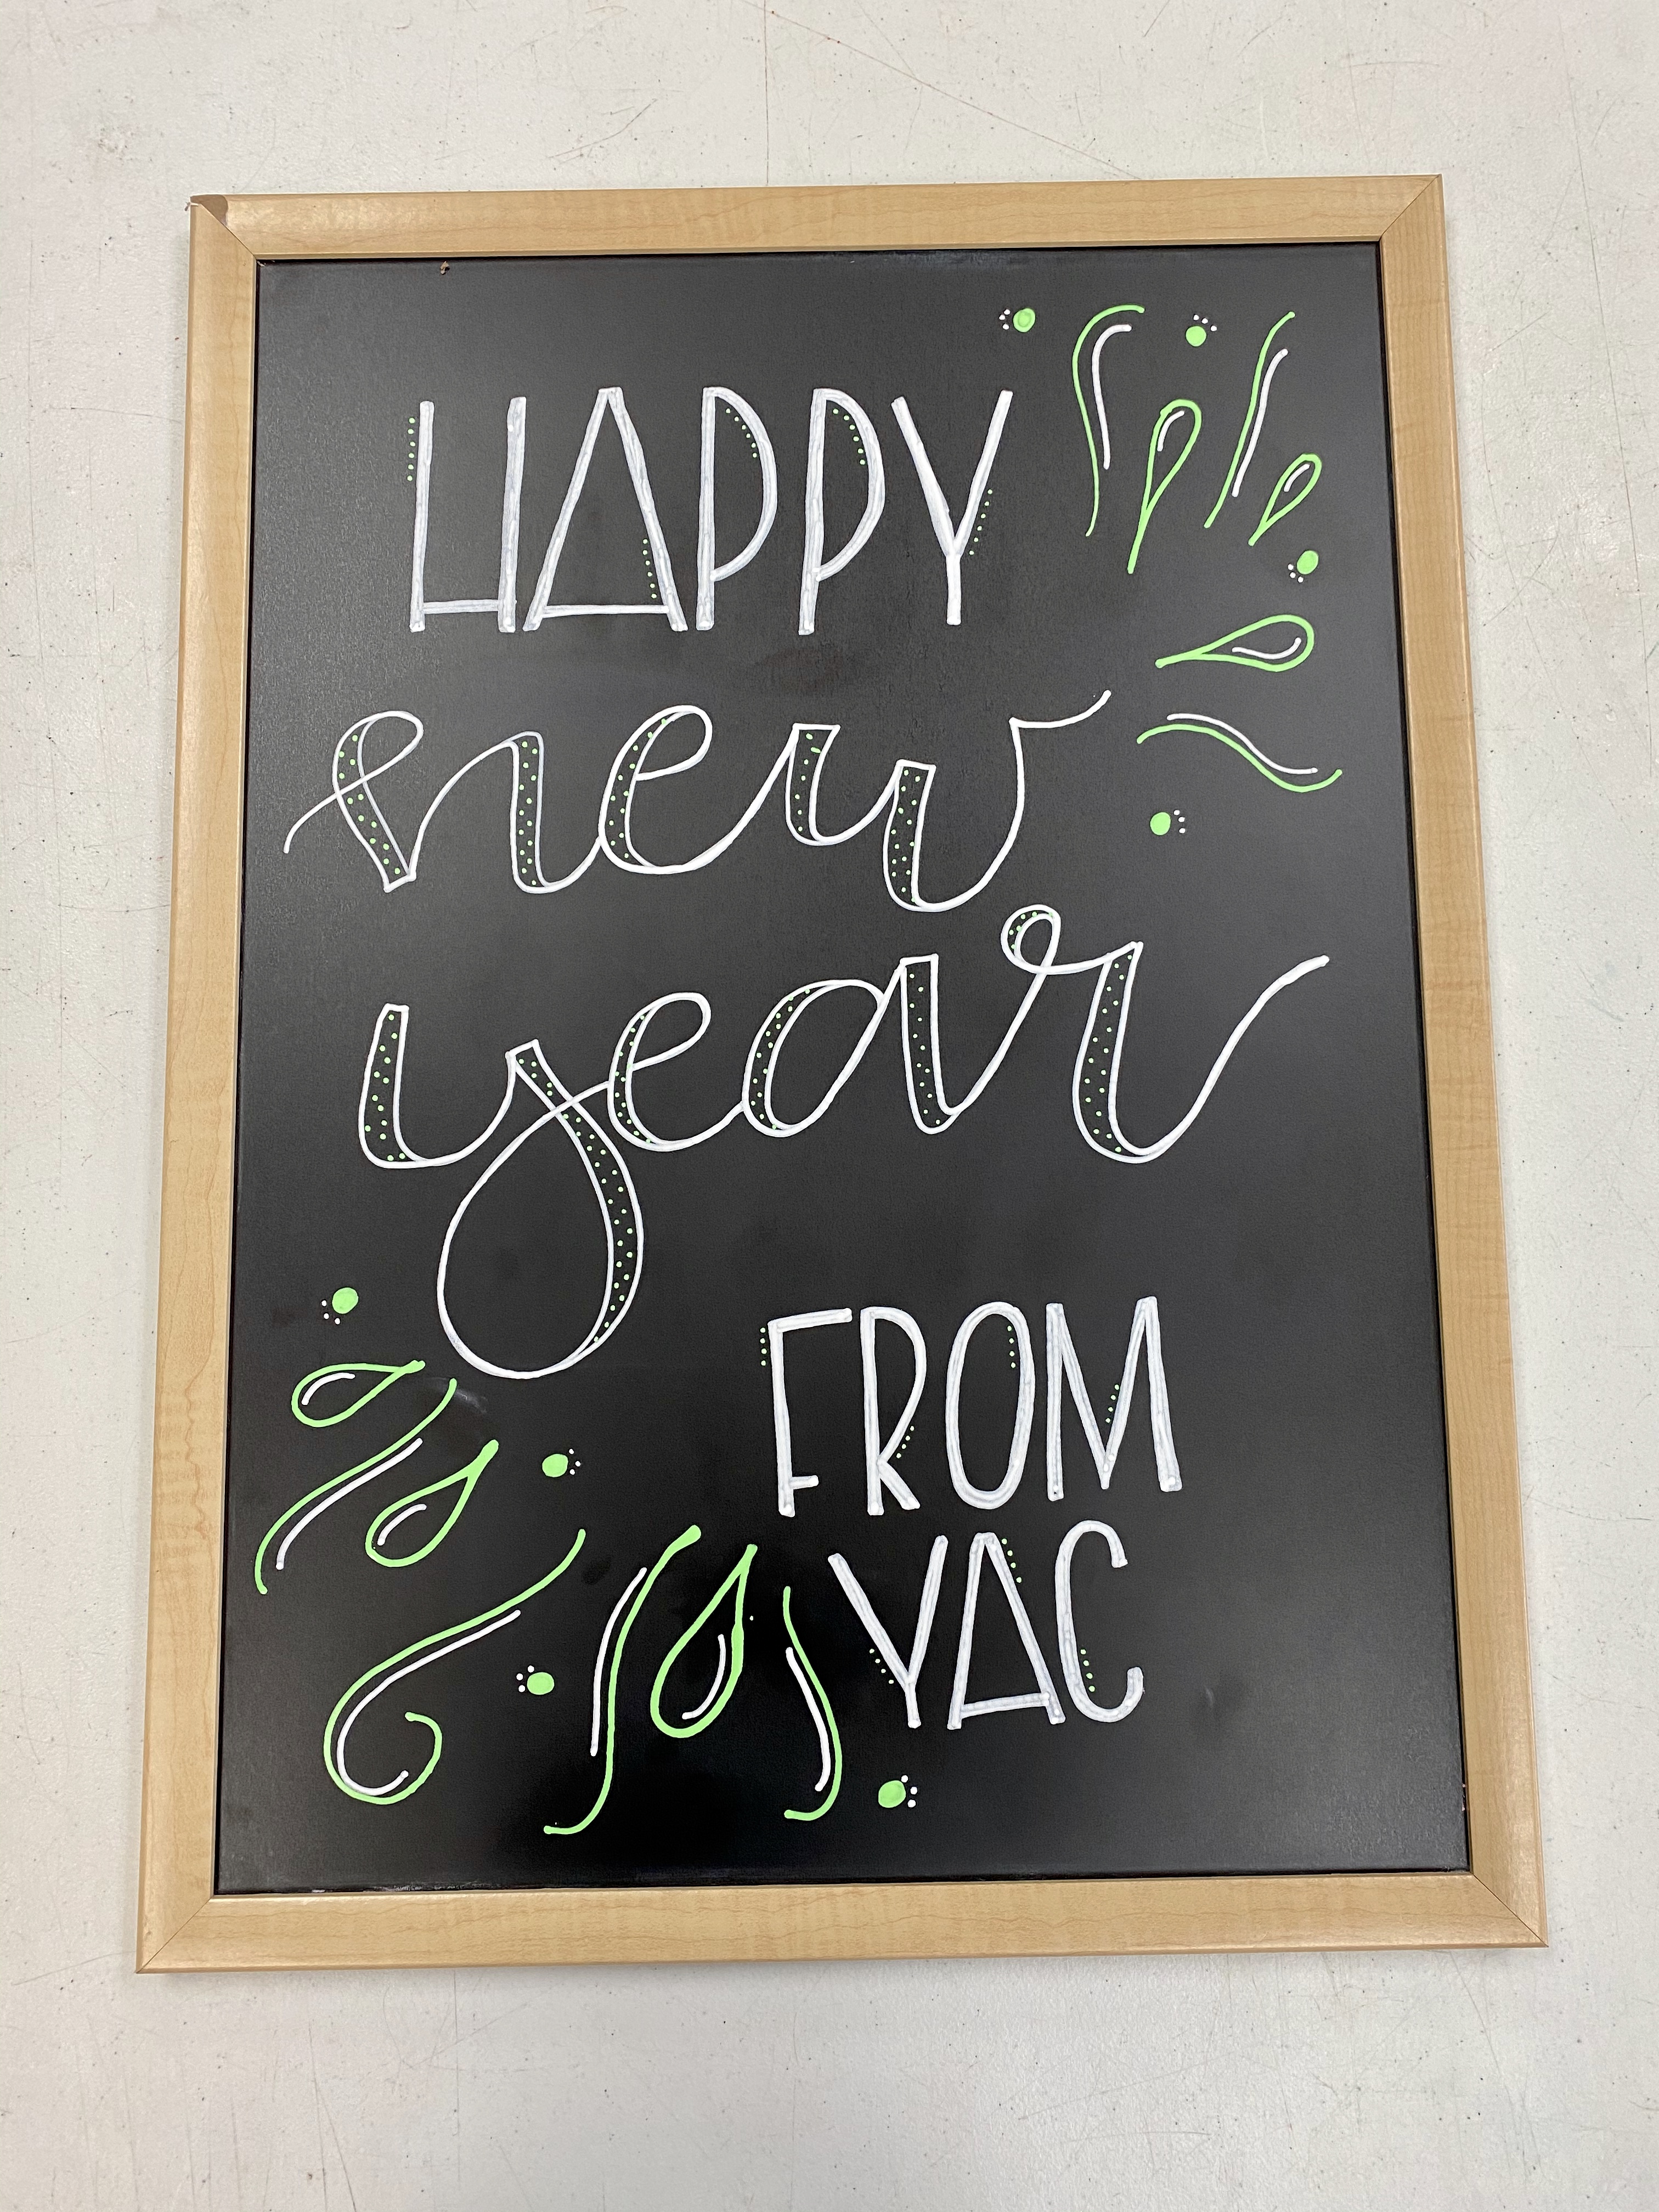 HAPPY
new
year
FROM
YAC